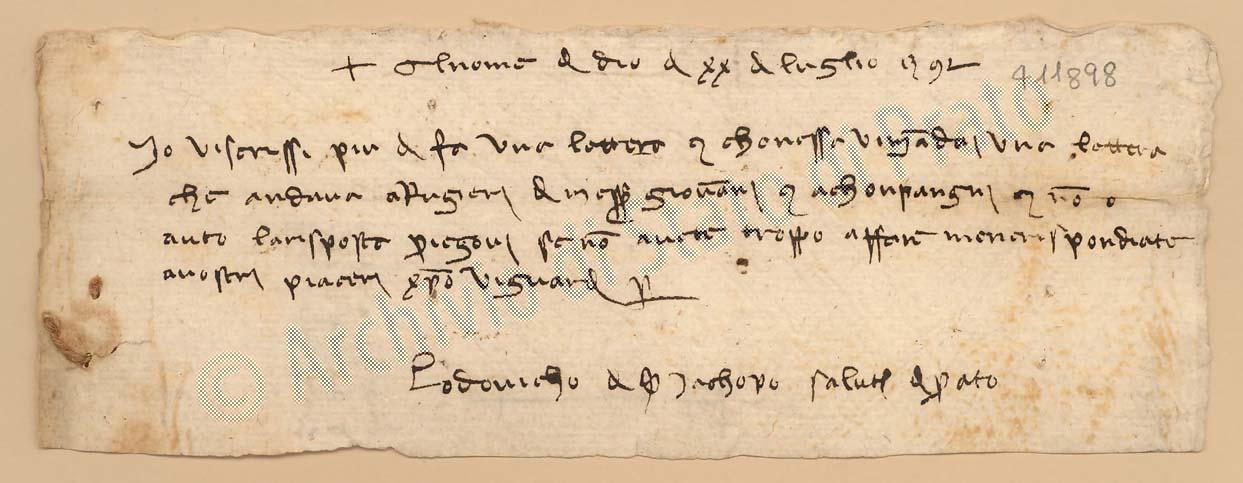 + Al nome di dio di xx di luglio
411898
Io viscrissi piu di fa una lettera e chonessa vi mandai una lettera
che andava a Rugieri di messer giovanni e achonpangni e nō o
auto larisposta priegovi se nō avete troppo affare menerispondiate
avostri piaceri xpō viguardi per
Lodovicho di ser Jachopo saluti di prato
© Archivio di Stato di Prato